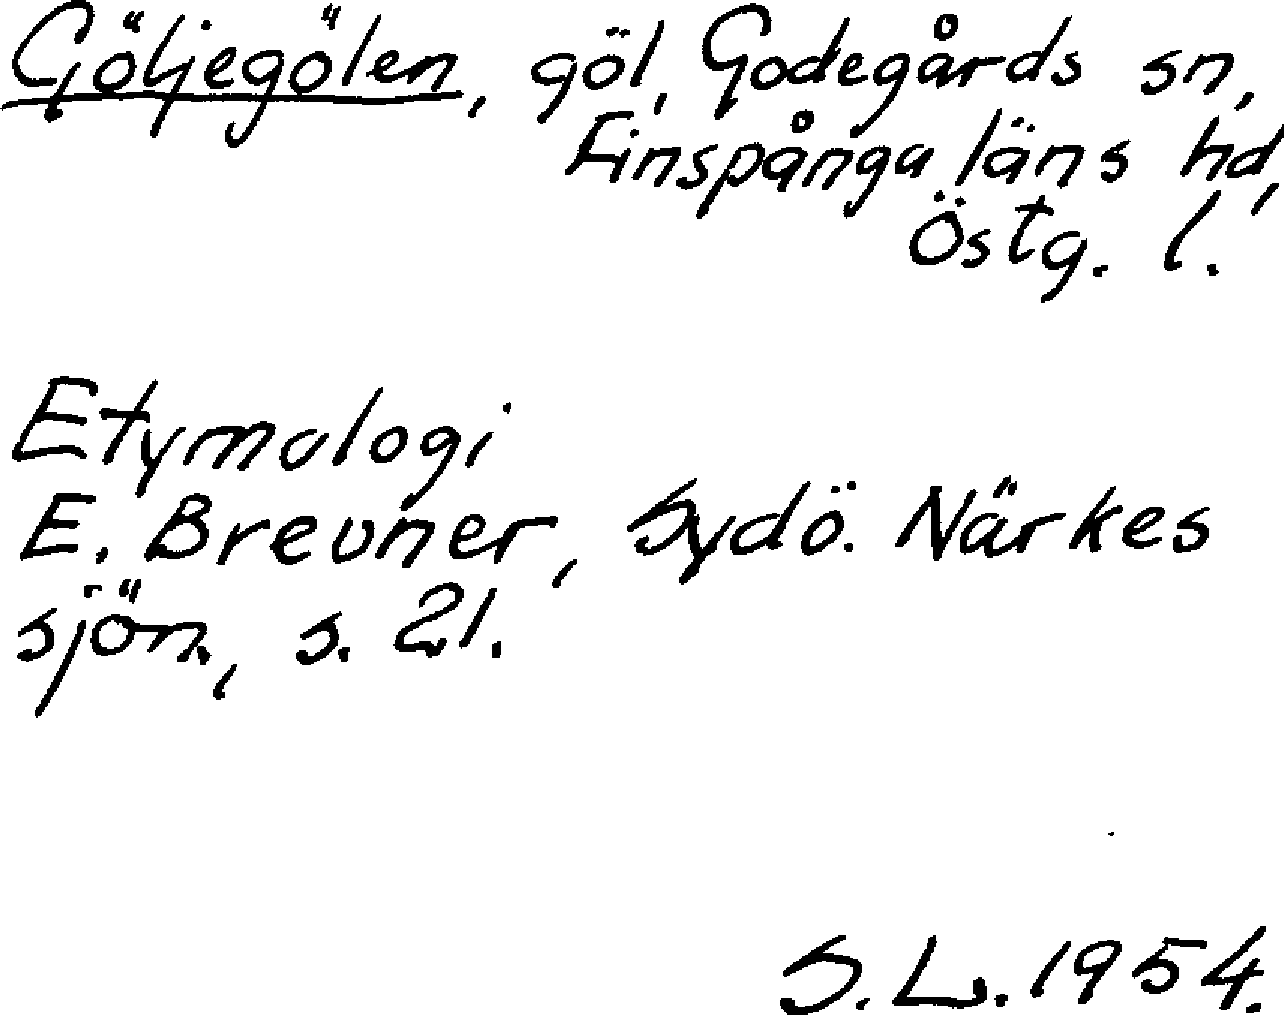 Göljegölen, göl, Godegårds sn,
Finspånga läns hd,
Östg. l.
Etymologi
E. Brevner, Sydö. Närkes
sjön., s. 21.
S. L. 1954.